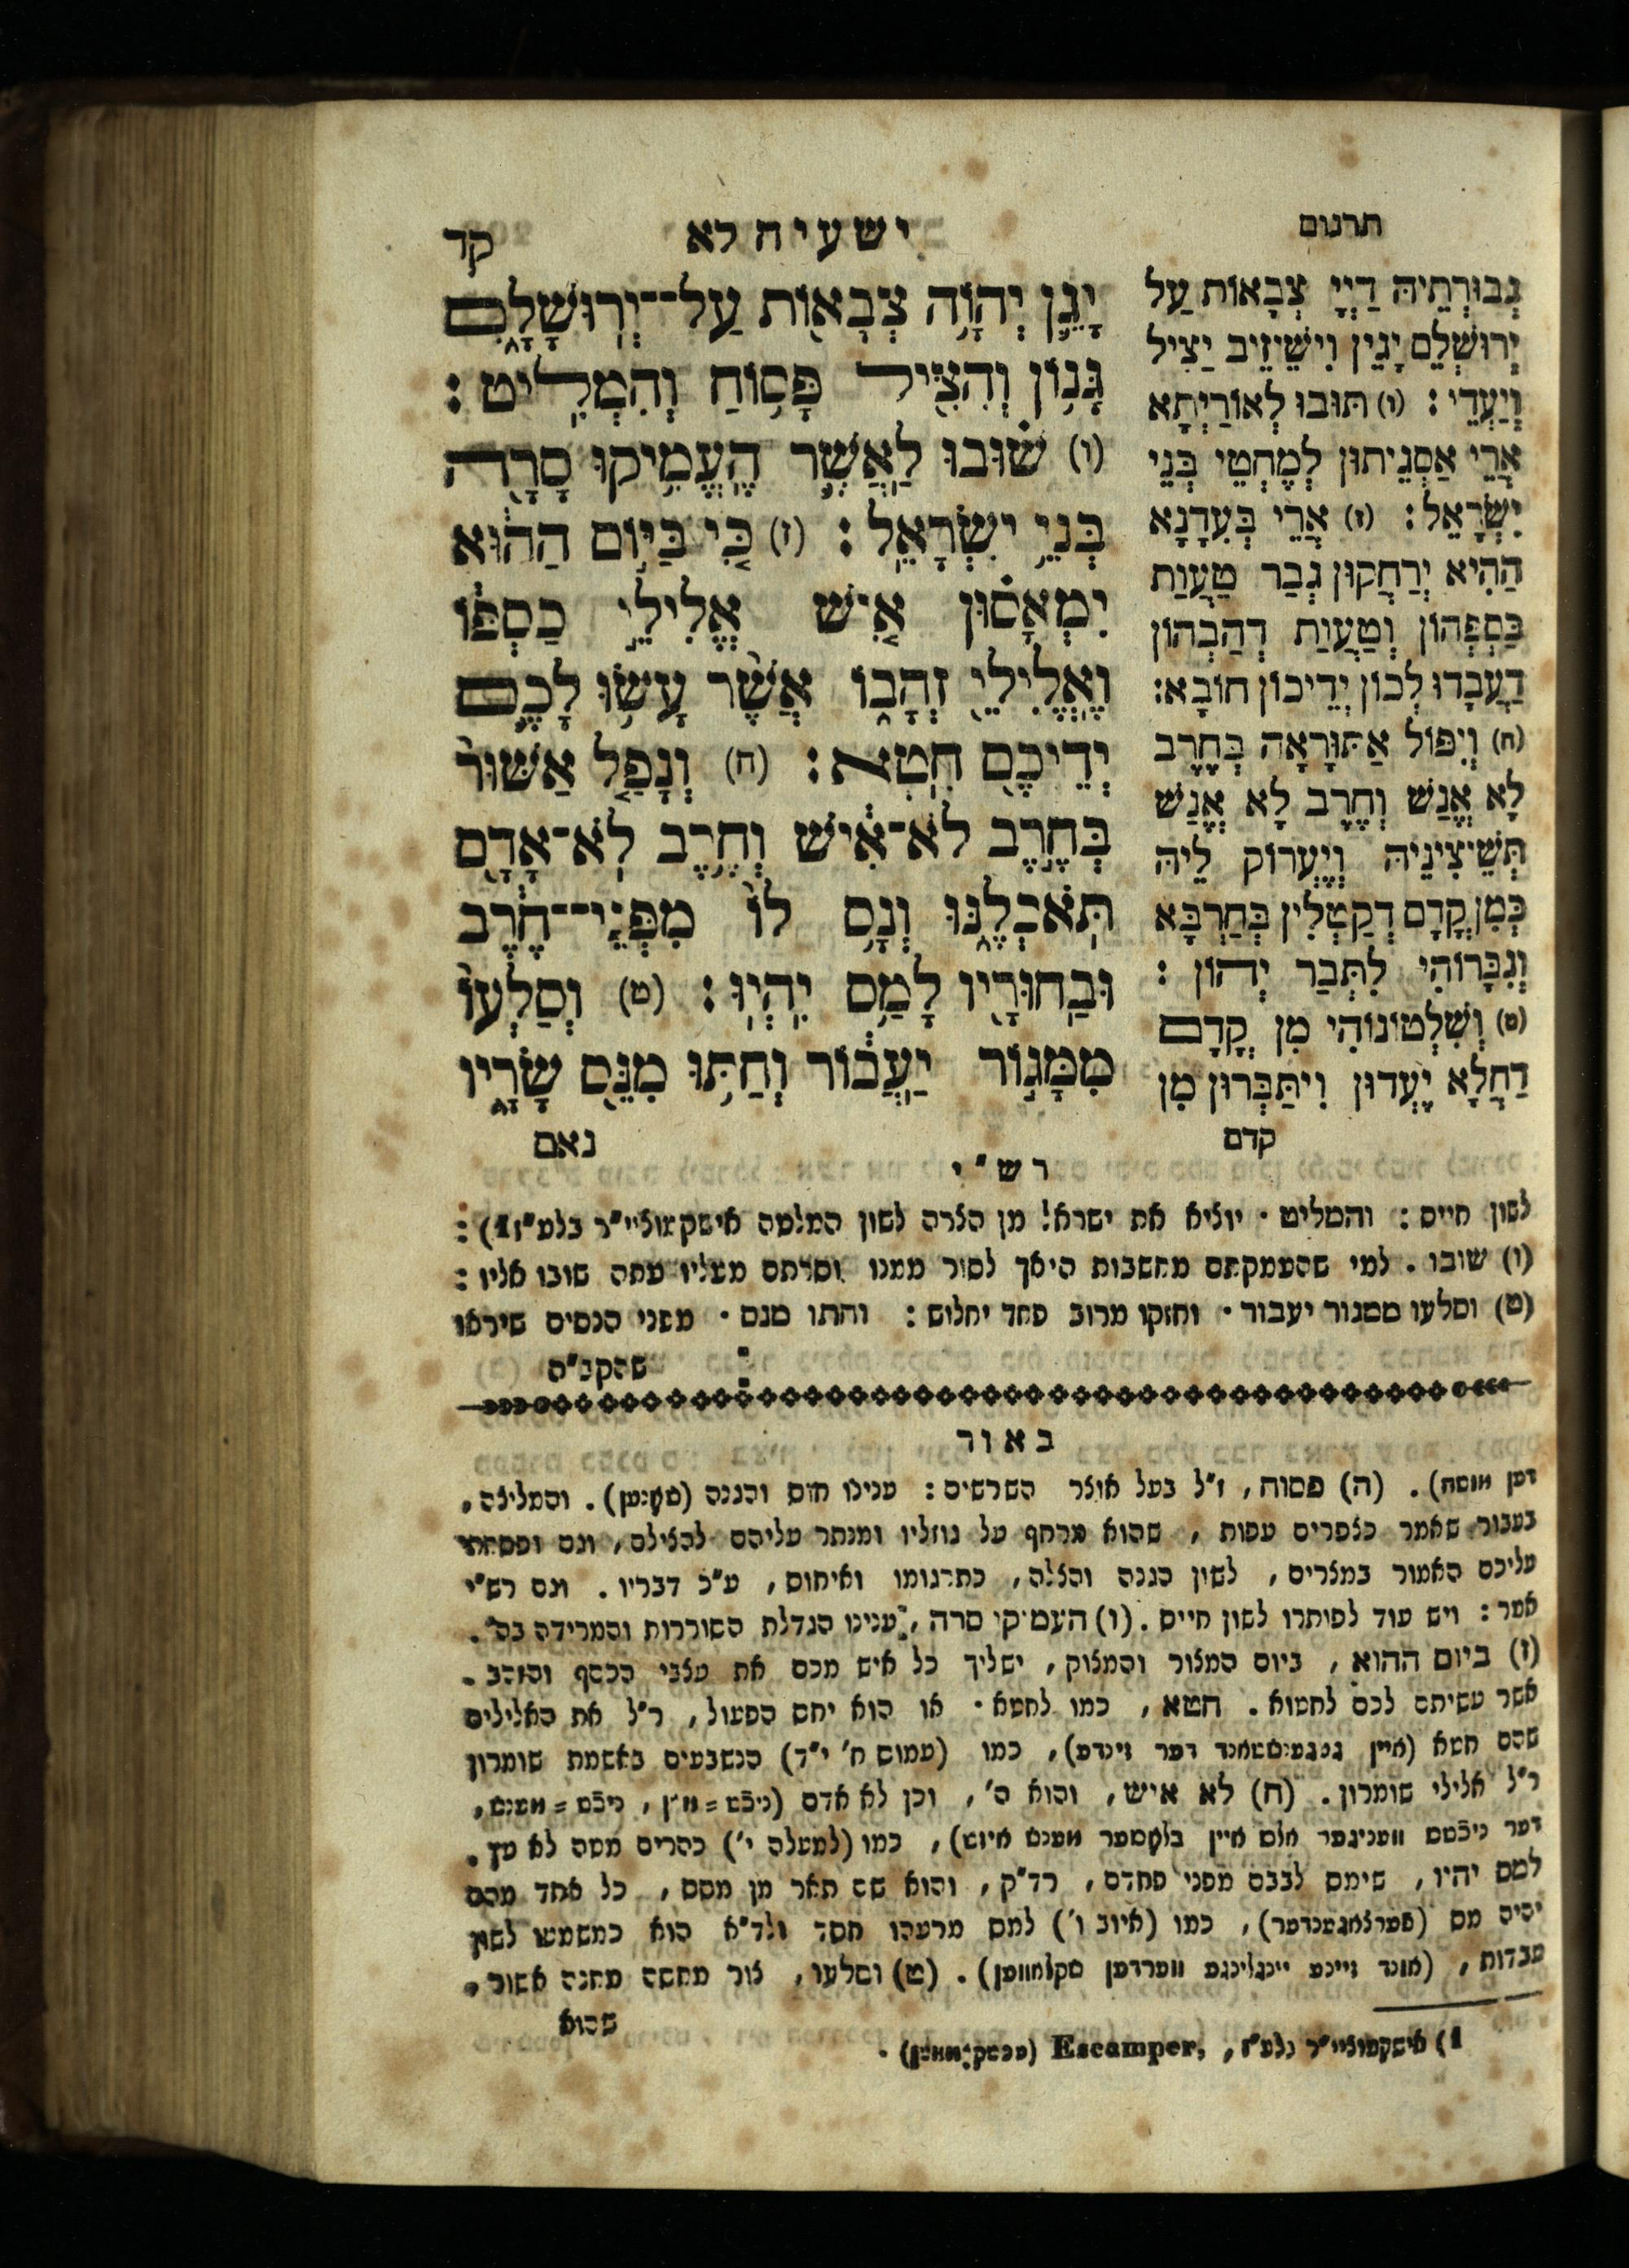 תרגום
ישעיה לא
קד
גְבוּרְתֵיהּ דַיְיָ צְבָאוֹת עַל
יְרוּשְׁלֵם יָגֵין וִישֵׁיזֵיב יַצִיל
וְיַעְדֵי : (ו) תּוּבוּ לְאוֹרַיְתָא
אֲרֵי אַסְגֵיתוּן לְמֶחְטֵי בְּנֵי
יִשְׂרָאֵל : (ז) אֲרֵי בְּעִדָנָא
הַהִיא יְרַחֲקוּן גְבַר טַעֲוַת
כַּסְפְּהוֹן וְטַעֲוַת דְהַבְהוֹן
דַעֲבָדוּ לְכוֹן יְדֵיכוֹן חוֹבָא :
(ח) וְיִפּוֹל אַתּוּרָאָה בְּחֶרֶב
לָא אֱנַשׁ וְחֶרֶב לָא אֱנַשׁ
תְּשֵׁיצִינֵיהּ וְיֶעְרוֹק לֵיהּ
כְּמִן קֳדָם דְקַטְלִין בְּחַרְבָּא
וְגִבָּרוֹהִי לִתְּבַר יְהוֹן :
(ט) וְשִׁלְטוֹנוֹהִי מִן קֳדָם
דַחֲלָא יֶעְדוּן וְיִתַּבְּרוּן מִן
קדם
יָגֵ֛ן יְהוָ֥ה צְבָא֖וֹת עַל־יְרֽוּשָׁלָ֑ם
גָּנ֥וֹן וְהִצִּ֖יל פָּס֥וֹחַ וְהִמְלִֽיט :
(ו) שׁ֗וּבוּ לַאֲשֶׁ֛ר הֶעְמִ֥יקוּ סָרָ֖ה
בְּנֵ֥י יִשְׂרָאֵֽל : (ז) כִּ֚י בַּיּ֣וֹם הַה֔וּא
יִמְאָס֗וּן אִ֚ישׁ אֱלִילֵ֣י כַסְפּ֔וֹ
וֶאֱלִילֵ֖י זְהָב֑וֹ אֲשֶׁ֨ר עָשׂ֥וּ לָכֶ֛ם
יְדֵיכֶ֖ם חֵֽטְא : (ח) וְנָפַ֤ל אַשּׁוּר֙
בְּחֶ֣רֶב לֹא־אִ֔ישׁ וְחֶ֥רֶב לֹֽא־אָדָ֖ם
תֹּֽאכְלֶ֑נּוּ וְנָ֥ס לוֹ֙ מִפְּנֵי־חֶ֔רֶב
וּבַחוּרָ֖יו לָמַ֥ס יִֽהְיֽוּ : (ט) וְסַלְעוֹ֙
מִמָּג֣וֹר יַֽעֲב֔וֹר וְחַתּ֥וּ מִנֵּ֖ס שָׂרָ֑יו
נאם
רש"י
לשון חיים : והמליט · יוציא את ישראל מן הצרה לשון המלטה אישקמוציי"ר בלע"ז 1) :
(ו) שובו . למי שהעמקתם מחשבות היאך לסור ממנו וסרתם מעליו עתה שובו אליו :
(ט) וסלעו ממגור יעבור · וחזקו מרוב פחד יחלוש : וחתו מנס · מפני הנסים שיראו
: שהקב"ה
באור
דען . (ה) פסוח, ז"ל בעל אוצר השרשים : ענינו חוס והגנה . והמליצה,
בעבור שאמר כצפרים עפות, שהוא מרחף על גוזליו ומנתר עליהם להצילם, וגם ופסחתי
עליכם האמור במצרים, לשון הגנה והצלה, כתרגומו ואיחוס, ע"כ דבריו . וגם רש"י
אמר : ויש עוד לפותרו לשון חיים . (ו) העמיקו סרה, ענינו הגדלת הסוררות והמרידה בה' .
(ז) ביום ההוא, ביום המצור והמצוק, ישליך כל איש מכם את עצבי הכסף והזהב .
אשר עשיתם לכם לחטוא . חטא, כמו לחטא · או הוא יחס הפעול, ר"ל את האלילים
שהם חטא (איין געגענשטאנד דער זינדע), כמו (עמוס ח' י"ד) הנשבעים באשמת שומרון
ר"ל אלילי שומרון . (ח) לא איש, והוא ה', וכן לא אדם ,
דער ניכטס וועניגער אלס איין בלאסער מענש איזט), כמו (למעלה י') כהרים מטה לא עץ .
למס יהיו, שימס לבבם מפני פחדם, רד"ק, והוא שם תאר מן מסס, כל אחד מהם
יהיה מס , כמו (איוב ו') למס מרעהו חסד ולד"א הוא כמשמעו לשון
עבדות, (אונד זיינע יינגלינגע ווערדען סקלאווען) . (ט) וסלעו, צור מחסה מחנה אשור,
שהוא
1) אישקמוציי"ר בלע"ז, Escamper, .